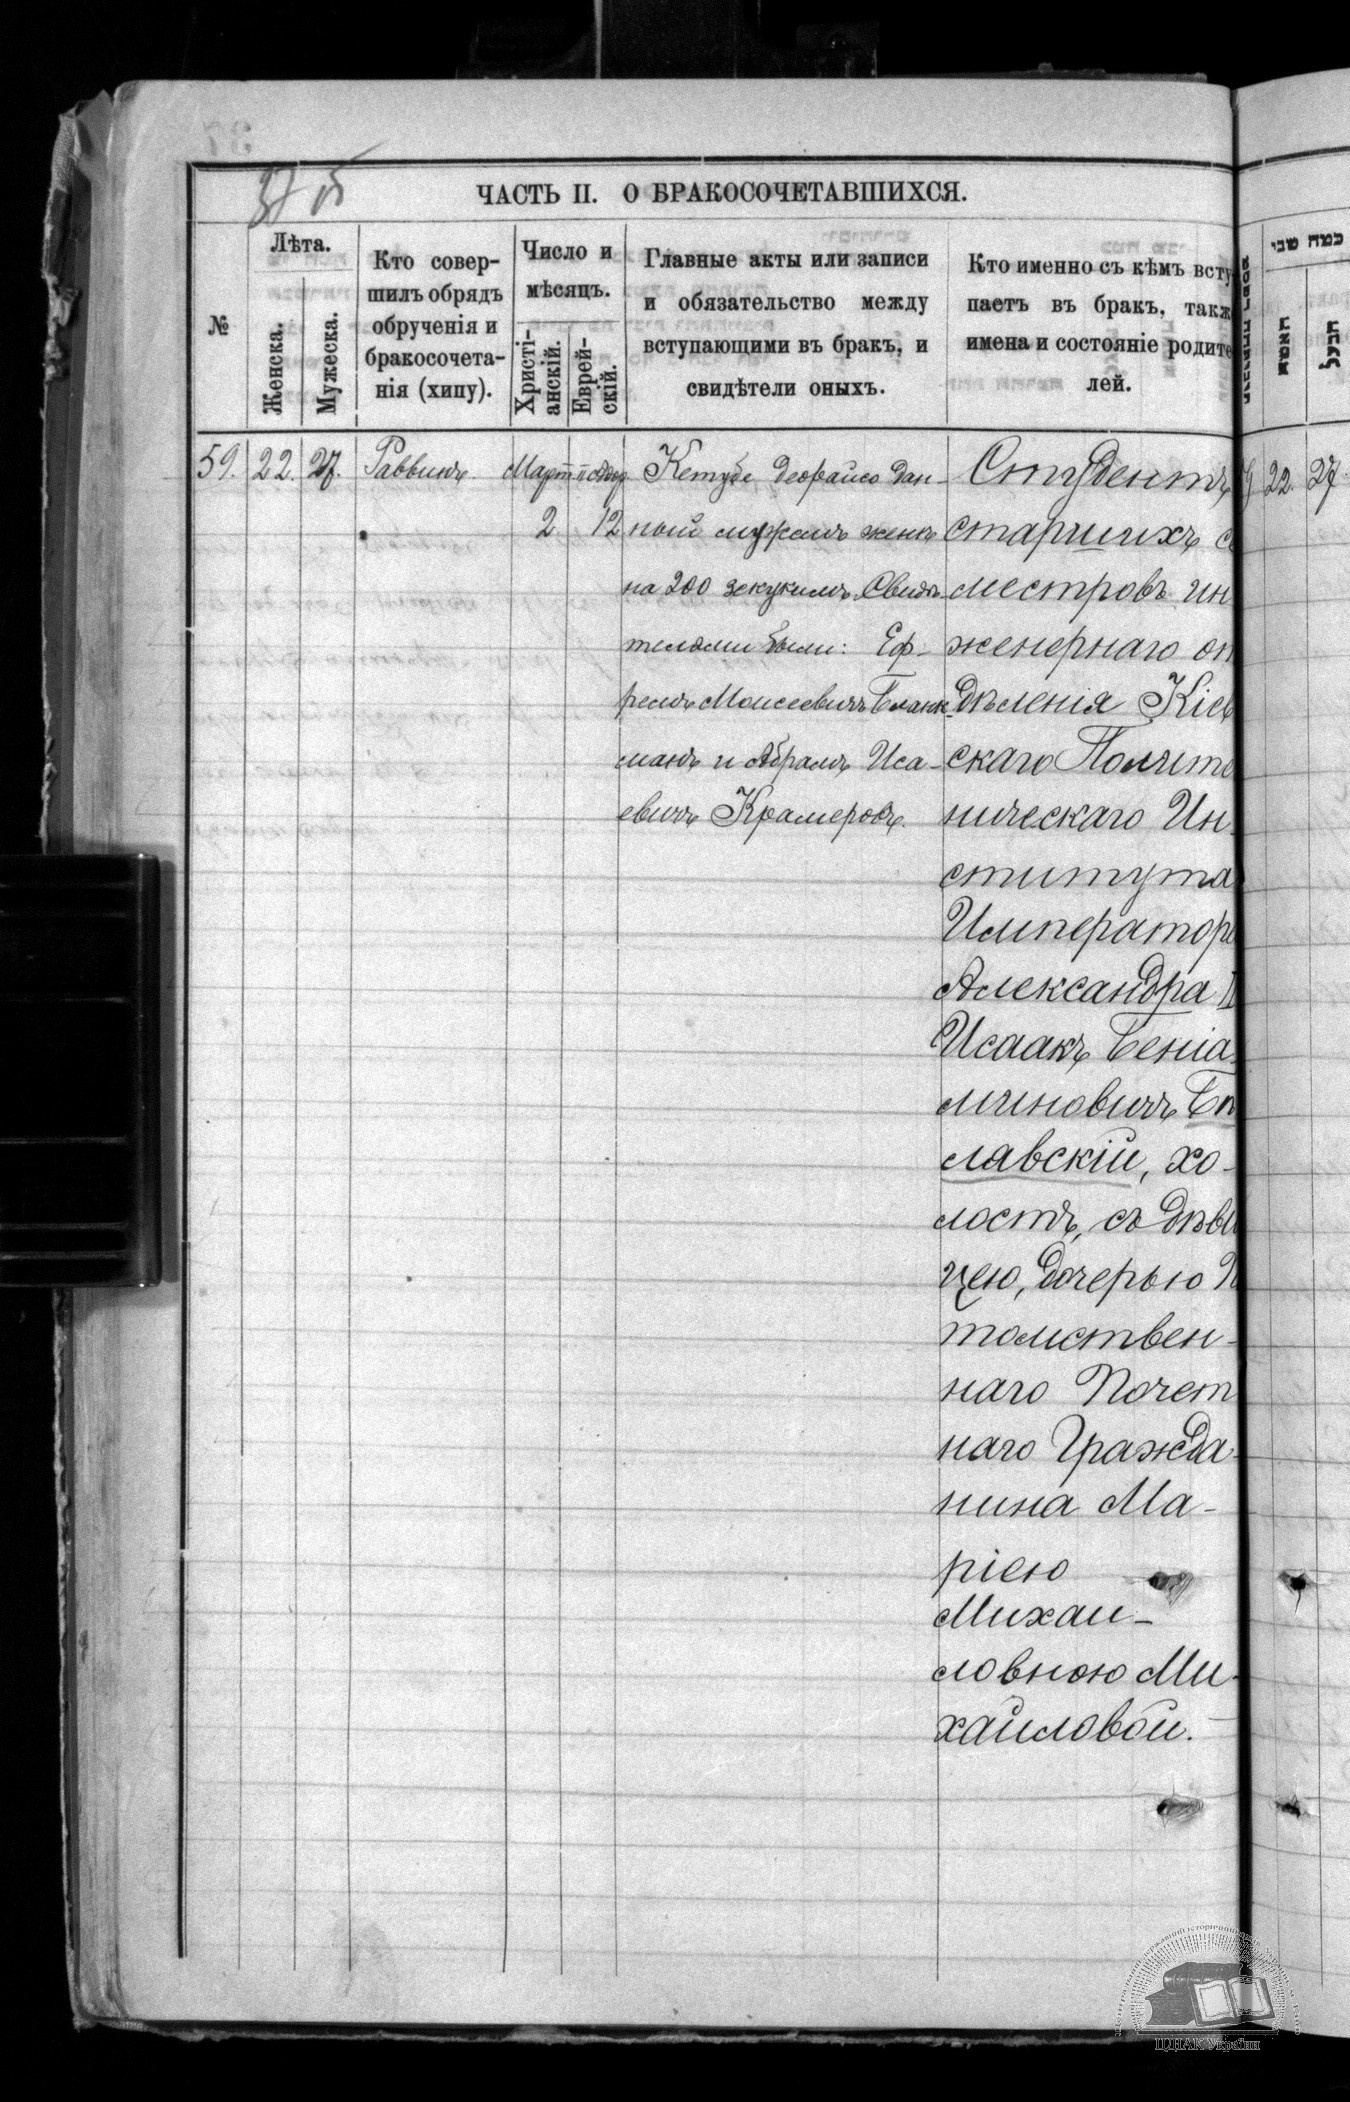 37 об
ЧАСТЬ II. О БРАКОСОЧЕТАВШИХСЯ.
№
Лѣта.
Женска.
Мужеска.
Кто совер-
шилъ обрядъ
обрученія и
бракосочета-
нія (хипу).
Число и
мѣсяцъ.
Христі-
анскій.
Еврей-
скій.
Главные акты или записи
и обязательство между
вступающими въ бракъ, и
свидѣтели оныхъ.
Кто именно съ кѣмъ всту
паетъ въ бракъ, такж
имена и состояніе родите
лей.
כמה שני
האשה
הבעל
59. 22. 27. Раввинъ. Мартъ
2 12
Кетубе деорайсо дан-
ный мужемъ женѣ
на 200 зекукимъ. Свидѣ-
телями были: Еф-
ремъ Моисеевичъ Бланк-
манъ и Абрамъ Иса-
евичъ Крамеровъ.
Студентъ
старшихъ се
местровъ ин
женернаго от
дѣленія Кіев
скаго Полите
ническаго Ин-
ститута
Императора
Александра II
Исаакъ Веніа-
миновичъ Бѣ
лавскій, хо-
лостъ, съ дѣви
цею, дочерью П
томствен-
наго Почет
наго Гражда-
нина Ма-
ріею
Михаи-
ловною Ми-
хайловой.
22. 27.
ЦДІАК України